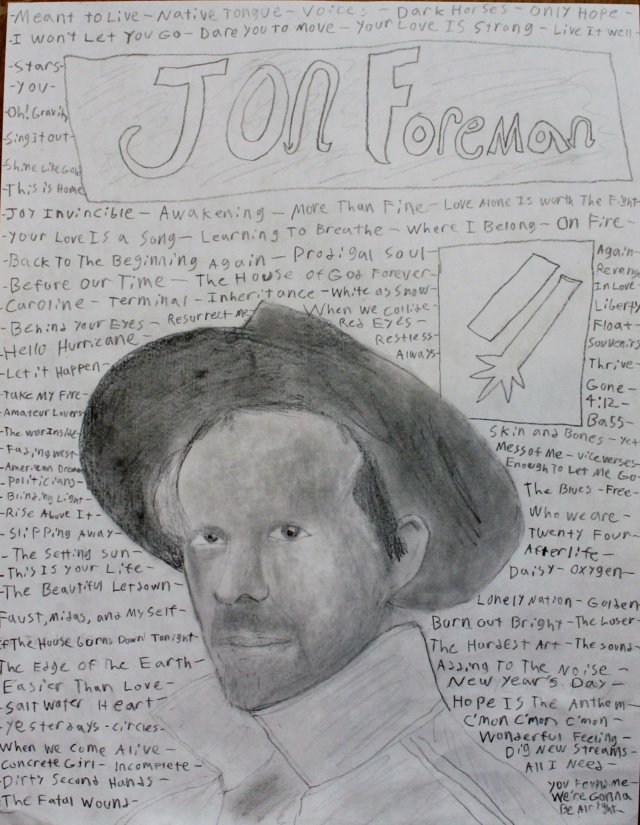 -Meant to Live-Native Tongue-Voices-Dark Horses-Only Hope-
-I won't Let You Go-Dare You to Move-Your Love Is Strong-Live It well-
-Stars-
-You-
-Oh! Gravity
-Sing it out-
-Shine Like Gold
-This is Home
Jon Foreman
-Joy Invincible-Awakening-More Than Fine-Love Alone Is worth The Fight-
-Your Love Is a Song-Learning To Breathe-Where I Belong-On Fire-
-Back To The Beginning Again-Prodigal Soul-
-Before Our Time-The House of God Forever-
-Caroline-Terminal-Inheritance-White as Snow-
-Behind Your Eyes-Resurrect Me-
When we collide-
Red Eyes-
Restless-
Always-
Again-
Revenge
In Love-
Liberty
Float-
Souvenirs
Thrive-
Gone-
4:12-
Bass-
-Hello Hurricane-
-Let it Happen-
-Take My Fire-
-Amateur Lovers
-The war Inside
-Fading West-
-American Dream
-Politicians-
-Blinding Light-
-Rise Above It-
-Slipping Away-
-The Setting Sun-
-This Is Your Life-
-The Beautiful Letdown-
Faust, Midas, and Myself-
If The House Burns Down Tonight-
The Edge of The Earth-
Easier Than Love-
-Saltwater Heart-
-Yesterdays-Circles-
When We Come Alive-
Concrete Girl-Incomplete-
-Dirty Second Hands-
-The Fatal Wound-
Skin and Bones-Yet
Mess of Me-Vice Verses-
Enough To Let Me Go-
The Blues-Free-
Who we are-
Twenty Four-
Afterlife-
Daisy-Oxygen-
Lonely Nation-Golden
Burn out Bright-The Loser-
The Hardest Art-The Sound-
Adding To The Noise-
New Year's Day-
Hope Is The Anthem-
C'mon C'mon C'mon-
Wonderful Feeling-
Dig New Streams-
All I Need-
You Found Me-
We're Gonna
Be Alright-